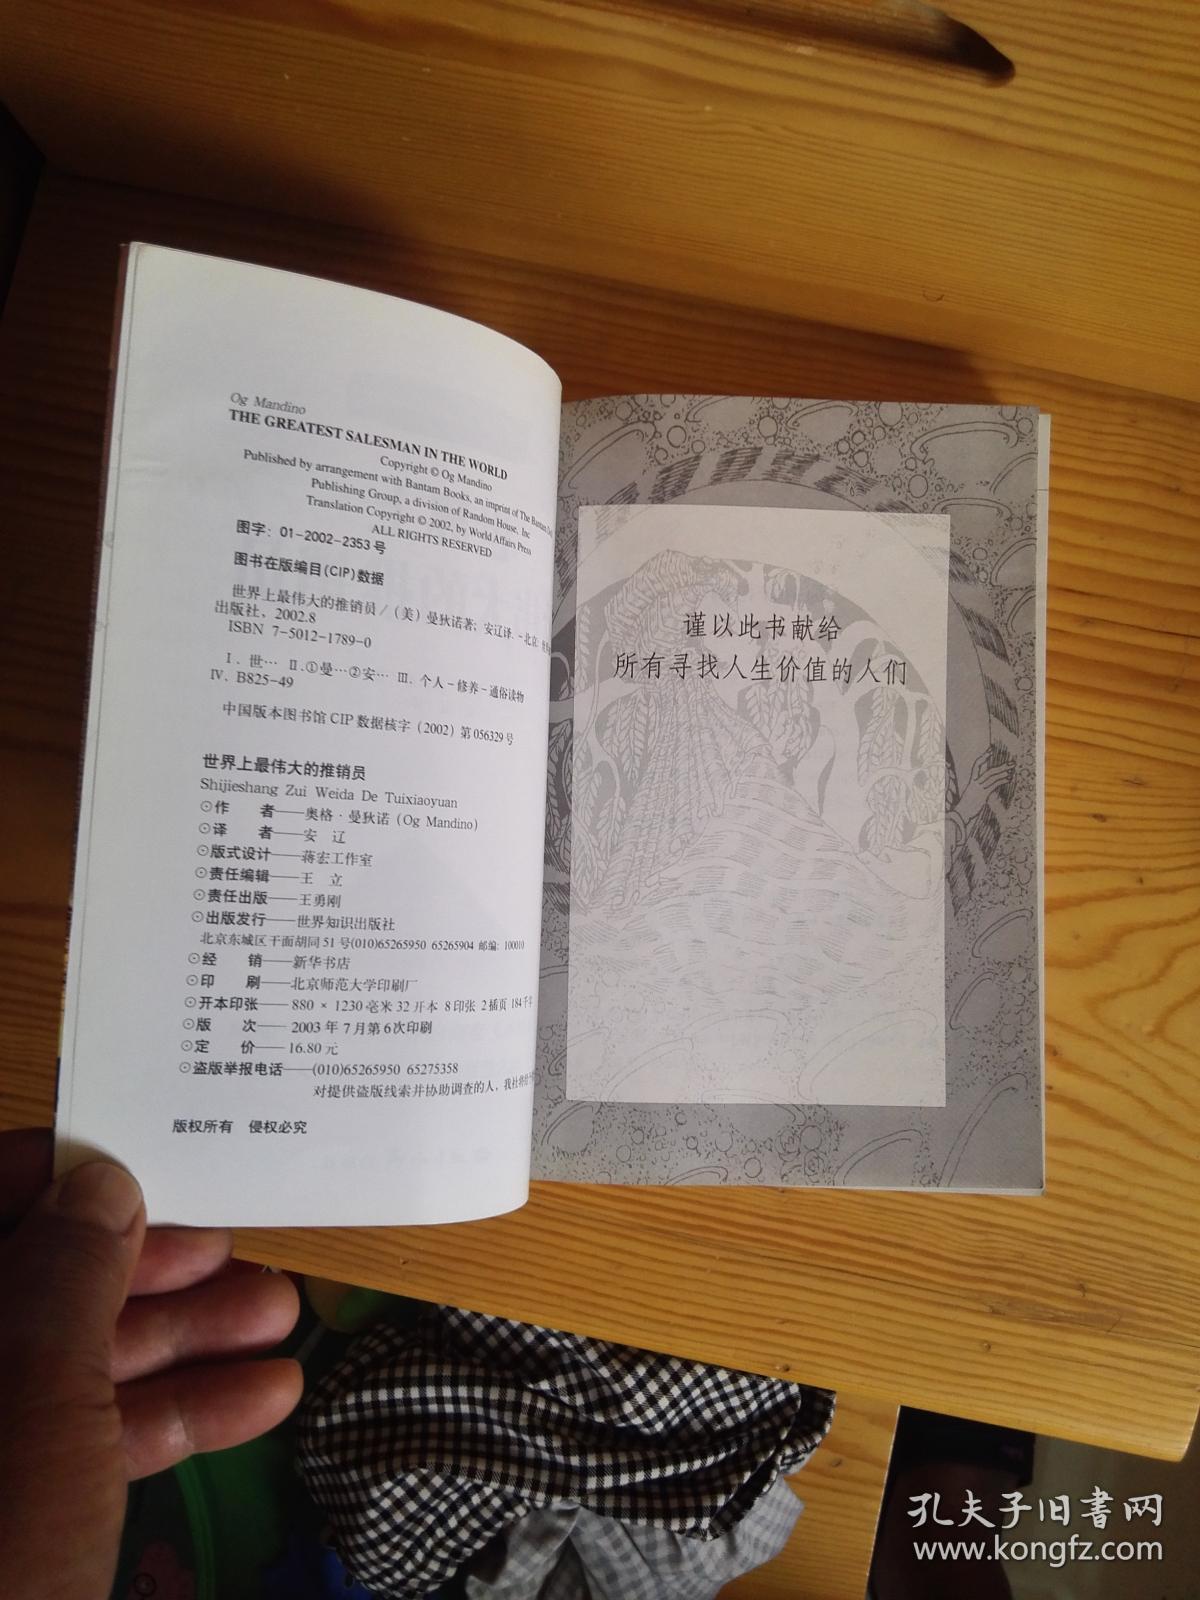 Og Mandino
THE GREATEST SALESMAN IN THE WORLD
Copyright © Og Mandino
Published by arrangement with Bantam Books, an imprint of The Bantam
Publishing Group, a division of Random House, Inc
Translation Copyright © 2002, by World Affairs Press
ALL RIGHTS RESERVED
图字：01-2002-2353号
图书在版编目(CIP)数据
世界上最伟大的推销员／（美）曼狄诺著；安辽译．－北京：
出版社，2002.8
ISBN 7-5012-1789-0
Ⅰ．世… Ⅱ.①曼…②安… Ⅲ．个人－修养－通俗读物
Ⅳ．B825-49
中国版本图书馆CIP数据核字（2002）第056329号
世界上最伟大的推销员
Shijieshang Zui Weida De Tuixiaoyuan
⊙作 者——奥格·曼狄诺（Og Mandino）
⊙译 者——安 辽
⊙版式设计——蒋宏工作室
⊙责任编辑——王 立
⊙责任出版——王勇刚
⊙出版发行——世界知识出版社
北京东城区干面胡同51号(010)65265950 65265904 邮编：100010
⊙经 销——新华书店
⊙印 刷——北京师范大学印刷厂
⊙开本印张——880×1230毫米32开本 8印张 2插页 184千字
⊙版 次——2003年7月第6次印刷
⊙定 价——16.80元
⊙盗版举报电话——(010)65265950 65275358
对提供盗版线索并协助调查的人，我社将给
版权所有 侵权必究
谨以此书献给
所有寻找人生价值的人们
孔夫子旧书网
www.kongfz.com